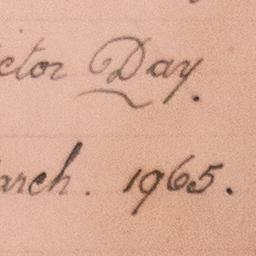 ctor Day.
arch. 1965.